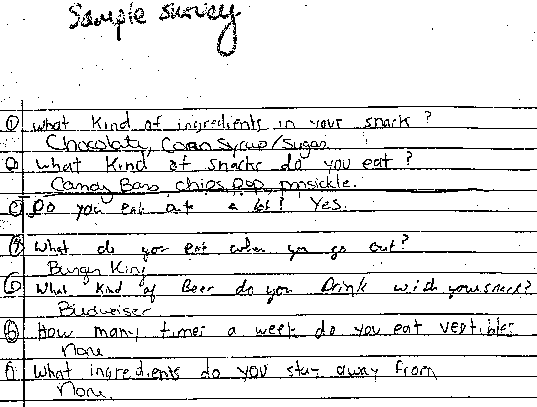 Sample survey
① What Kind of ingredients in your snack?
Chocolaty, Corn Syrup/Sugar
② What Kind of snacks do you eat?
Candy Bars chips, pop, popsickle.
③ Do you eat out a lot? Yes.
④ What do you eat when you go out?
Burger King
⑤ What Kind of Beer do you Drink with your snack?
Budweiser
⑥ How many times a week do you eat vegtibles
None
What ingredients do you stay away from
None.